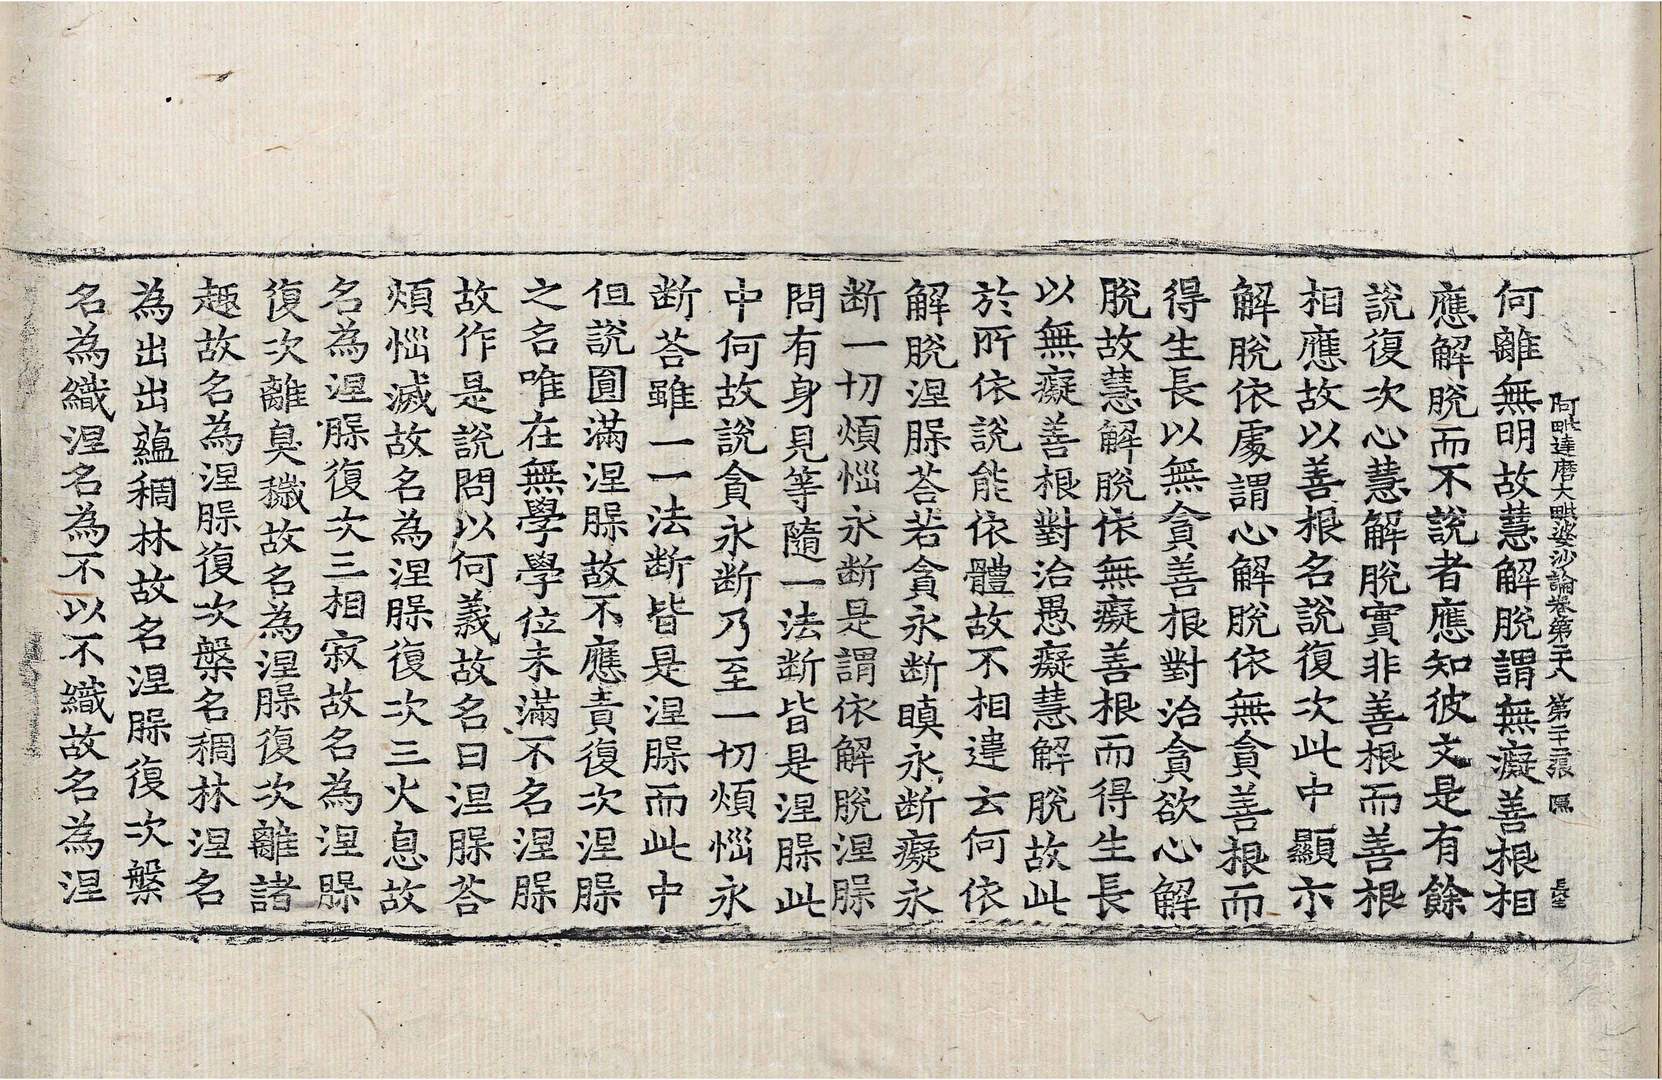 阿毗達磨大毗婆沙論卷第二十八 第二十張 隰
何離無明故慧解脫謂無癡善根相
應解脫而不說者應知彼文是有餘
說復次心慧解脫實非善根而善根
相應故以善根名說復次此中顯示
解脫依處謂心解脫依無貪善根而
得生長以無貪善根對治貪欲心解
脫故慧解脫依無癡善根而得生長
以無癡善根對治愚癡慧解脫故此
於所依說能依體故不相違云何依
解脫涅槃荅若貪永断瞋永断癡永
断一切煩惱永断是謂依解脫涅槃
問有身見等隨一法断皆是涅槃此
中何故說貪永断乃至一切煩惱永
断荅雖一一法断皆是涅槃而此中
但說圓滿涅槃故不應責復次涅槃
之名唯在無學學位未滿不名涅槃
故作是說問以何義故名曰涅槃荅
煩惱滅故名為涅槃復次三火息故
名為涅槃復次三相寂故名為涅槃
復次離臭穢故名為涅槃復次離諸
趣故名為涅槃復次槃名稠林涅名
為出出蘊稠林故名涅槃復次槃
名為織涅名為不以不織故名為涅